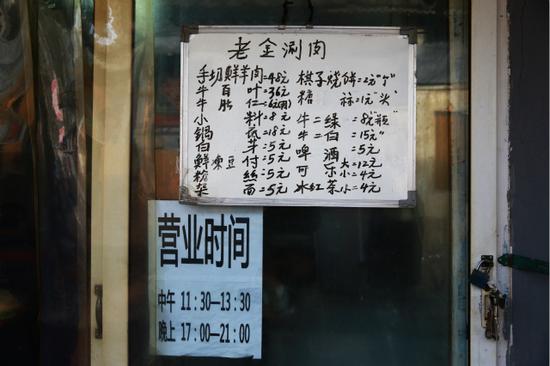 老金涮肉
手切鲜羊肉=48元 棋子烧饼=2元"个"
牛百叶=36元 糖蒜=1元"头"
牛肚仁
小料=8元 牛二绿=8元"瓶"
锅=18元 牛二白=15元"
白=5元 啤酒=5元
鲜冻豆付=5元 可乐大=12元
粉丝=5元 小=4元
杂面=5元 冰红茶小=4元
营业时间
中午 11:30—13:30
晚上 17:00—21:00